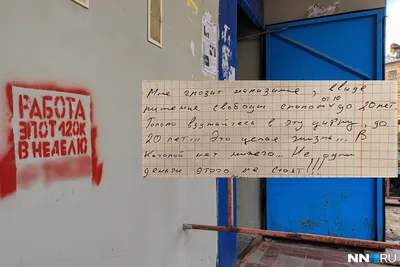 РАБОТА
ЗП ОТ 120К
В НЕДЕЛЮ
Мне грозит наказание, ввиде
лишения свободы сроком до 20 лет.
Только вдумайтесь в эту цифру, до
20 лет!!! Это целая жизнь... В
которой нет ничего... Не одни
деньги этого не стоят!!!
NN.RU